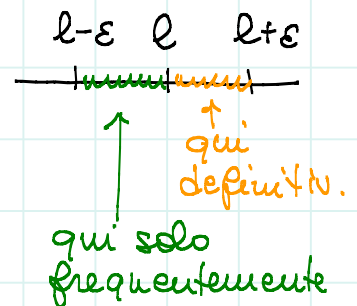 l-ε l l+ε
qui
definitiv.
qui solo
frequentemente